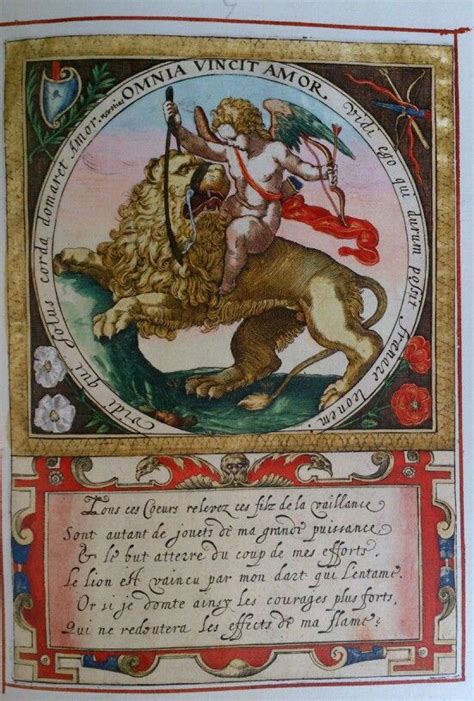 OMNIA VINCIT AMOR.
Vidi ego qui durum posset frenare leonem;
vidi qui solus corda domaret Amor.
Tous ces Coeurs relevez ces filz de la vaillance
Sont autant de jouets dé ma grande puissance
& le but atterre du coup de mes efforts.
Le lion est vaincu par mon dart qui l'entame.
Or si je domte ainsy les courages plus forts,
Qui ne redoutera les effects dé ma flame?